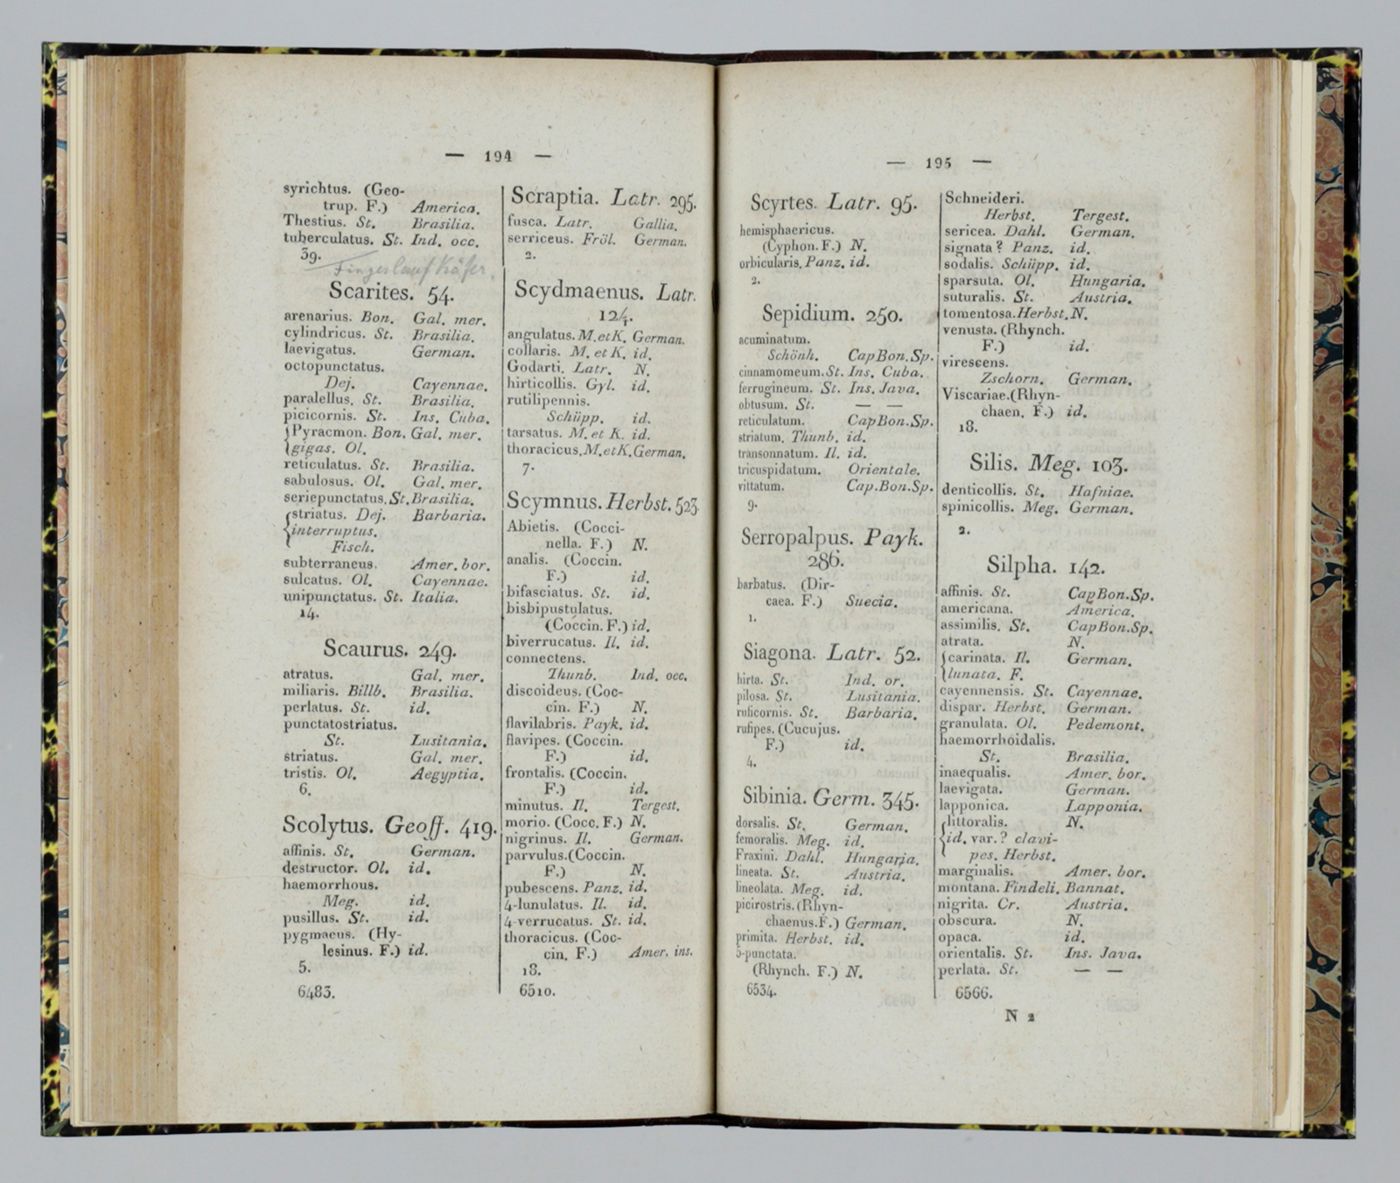 — 194 —
syrichtus. (Geo-
trup. F.) America.
Thestius. St. Brasilia.
tuberculatus. St. Ind. occ.
39.
Fingerlauf Käfer.
Scarites. 54.
arenarius. Bon. Gal. mer.
cylindricus. St. Brasilia.
laevigatus. German.
octopunctatus.
Dej. Cayennae.
paralellus. St. Brasilia.
picicornis. St. Ins. Cuba.
{Pyracmon. Bon. Gal. mer.
{gigas. Ol.
reticulatus. St. Brasilia.
sabulosus. Ol. Gal. mer.
seriepunctatus. St. Brasilia.
{striatus. Dej. Barbaria.
{interruptus.
Fisch.
subterraneus. Amer. bor.
sulcatus. Ol. Cayennae.
unipunctatus. St. Italia.
14.
Scaurus. 249.
atratus. Gal. mer.
miliaris. Billb. Brasilia.
perlatus. St. id.
punctatostriatus.
St. Lusitania.
striatus. Gal. mer.
tristis. Ol. Aegyptia.
6.
Scolytus. Geoff. 419.
affinis. St. German.
destructor. Ol. id.
haemorrhous.
Meg. id.
pusillus. St. id.
pygmaeus. (Hy-
lesinus. F.) id.
5.
6483.
Scraptia. Latr. 295.
fusca. Latr. Gallia.
serriceus. Fröl. German.
2.
Scydmaenus. Latr.
124.
angulatus. M. et K. German.
collaris. M. et K. id.
Godarti. Latr. N.
hirticollis. Gyl. id.
rutilipennis.
Schüpp. id.
tarsatus. M. et K. id.
thoracicus. M. et K. German.
7.
Scymnus. Herbst. 523.
Abietis. (Cocci-
nella. F.) N.
analis. (Coccin.
F.) id.
bifasciatus. St. id.
bisbipustulatus.
(Coccin. F.) id.
biverrucatus. Il. id.
connectens.
Thunb. Ind. occ.
discoideus. (Coc-
cin. F.) N.
flavilabris. Payk. id.
flavipes. (Coccin.
F.) id.
frontalis. (Coccin.
F.) id.
minutus. Il. Tergest.
morio. (Cocc. F.) N.
nigrinus. Il. German.
parvulus. (Coccin.
F.) N.
pubescens. Panz. id.
4-lunulatus. Il. id.
4-verrucatus. St. id.
thoracicus. (Coc-
cin. F.) Amer. ins.
18.
6510.
— 195 —
Scyrtes. Latr. 95.
hemisphaericus.
(Cyphon. F.) N.
orbicularis. Panz. id.
2.
Sepidium. 250.
acuminatum.
Schönh. Cap Bon. Sp.
cinnamomeum. St. Ins. Cuba.
ferrugineum. St. Ins. Java.
obtusum. St. — —
reticulatum. Cap Bon. Sp.
striatum. Thunb. id.
transonnatum. Il. id.
tricuspidatum. Orientale.
vittatum. Cap. Bon. Sp.
9.
Serropalpus. Payk.
286.
barbatus. (Dir-
caea. F.) Suecia.
1.
Siagona. Latr. 52.
hirta. St. Ind. or.
pilosa. St. Lusitania.
ruficornis. St. Barbaria.
rufipes. (Cucujus.
F.) id.
4.
Sibinia. Germ. 345.
dorsalis. St. German.
femoralis. Meg. id.
Fraxini. Dahl. Hungaria.
lineata. St. Austria.
lineolata. Meg. id.
picirostris. (Rhyn-
chaenus. F.) German.
primita. Herbst. id.
5-punctata.
(Rhynch. F.) N.
6534.
Schneideri.
Herbst. Tergest.
sericea. Dahl. German.
signata? Panz. id.
sodalis. Schüpp. id.
sparsuta. Ol. Hungaria.
suturalis. St. Austria.
tomentosa. Herbst. N.
venusta. (Rhynch.
F.) id.
virescens.
Zschorn. German.
Viscariae. (Rhyn-
chaen. F.) id.
18.
Silis. Meg. 103.
denticollis. St. Hafniae.
spinicollis. Meg. German.
2.
Silpha. 142.
affinis. St. Cap Bon. Sp.
americana. America.
assimilis. St. Cap Bon. Sp.
atrata. N.
{carinata. Il. German.
{lunata. F.
cayennensis. St. Cayennae.
dispar. Herbst. German.
granulata. Ol. Pedemont.
haemorrhoidalis.
St. Brasilia.
inaequalis. Amer. bor.
laevigata. German.
lapponica. Lapponia.
{littoralis. N.
{id. var.? clavi-
pes. Herbst.
marginalis. Amer. bor.
montana. Findeli. Bannat.
nigrita. Cr. Austria.
obscura. N.
opaca. id.
orientalis. St. Ins. Java.
perlata. St. — —
6566.
N 2